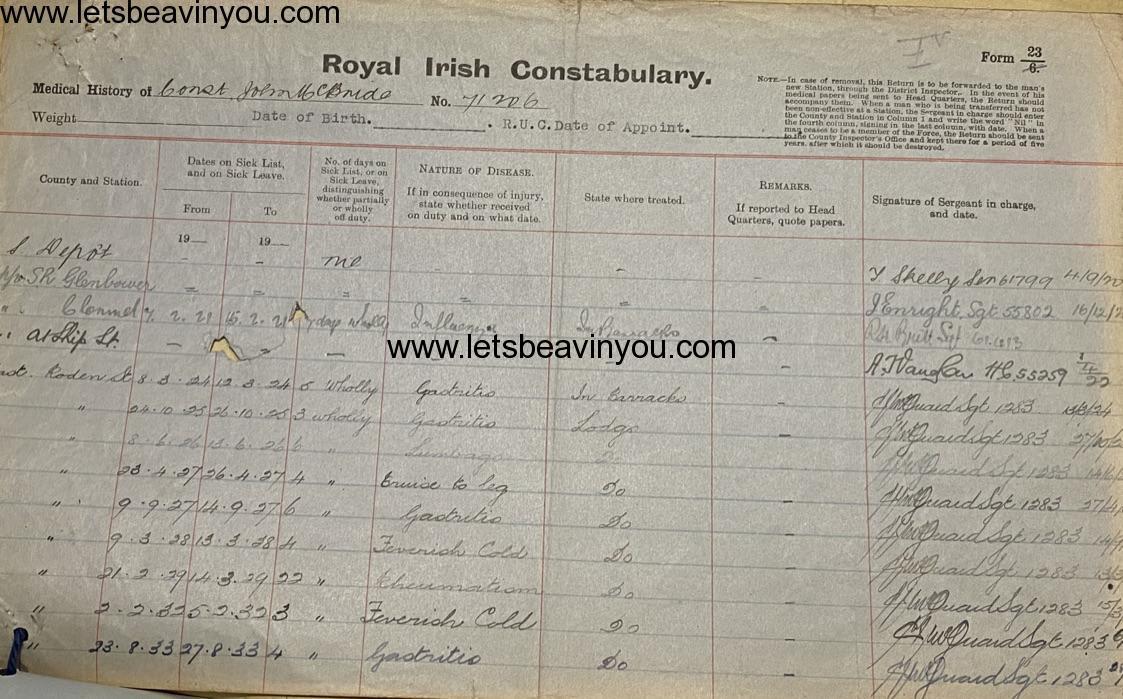 www.letsbeavinyou.com
Form 23
6.
Royal Irish Constabulary.
Medical History of Const. John McBride No. 71206
Weight Date of Birth. R.U.C. Date of Appoint.
NOTE.—In case of removal, this Return is to be forwarded to the man's
new Station, through the District Inspector. In the event of his
medical papers being sent to Head Quarters, the Return should
accompany them. When a man who is being transferred has not
been non-effective at a Station, the Sergeant in charge should enter
the County and Station in Column 1 and write the word "Nil" in
the fourth column, signing in the last column, with date. When a
man ceases to be a member of the Force, the Return should be sent
to the County Inspector's Office and kept there for a period of five
years, after which it should be destroyed.
County and Station.
Dates on Sick List,
and on Sick Leave.
From To
No. of days on
Sick List, or on
Sick Leave,
distinguishing
whether partially
or wholly
off duty.
NATURE OF DISEASE.
If in consequence of injury,
state whether received
on duty and on what date.
State where treated.
REMARKS.
If reported to Head
Quarters, quote papers.
Signature of Sergeant in charge,
and date.
19 19
Depôt - - - - Shelly 61799 4/9/20
SR Glenbower = = = = = J Enright Sgt 55802 16/12/
Clonmel 2. 21 15. 2. 21 days wholly Influenza In Barracks Sgt
www.letsbeavinyou.com
At Ship St. - - - - A J Vaughan HC 55259
Roden St 8. 3. 24 12. 3. 24 5 Wholly Gastritis In Barracks - Sgt 1283
" 24. 10. 25 26. 10. 25 3 wholly Gastritis Lodge - Sgt 1283
" 8. 6. 26 13. 6. 26 6 " Lumbago Do Sgt 1283
" 23. 4. 27 26. 4. 27 4 " bruise to leg Do - Sgt 1283
" 9. 9. 27 14. 9. 27 6 " Gastritis Do - Sgt 1283
" 9. 3. 28 13. 3. 28 4 " Feverish Cold Do - Sgt 1283
" 21. 2. 29 14. 3. 29 22 " Rheumatism Do - Sgt 1283
" 2. 2. 32 5. 2. 32 3 " Feverish Cold Do - Sgt 1283
" 23. 8. 33 27. 8. 33 4 " Gastritis Do - Sgt 1283